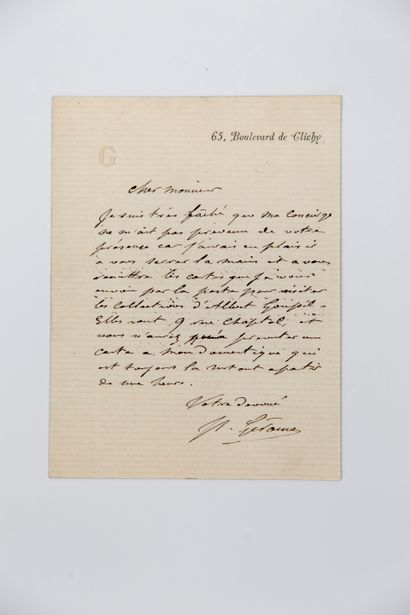 65, Boulevard de Clichy
G
cher monsieur
Je suis très fâché que ma concierge
ne m'ait pas prevenu de votre
présence car j'aurais eu plaisir
à vous serrer la main et a vous
remettre les cartes que je vous
envoie par la poste pour visiter
les collections d'Albert Goupil -
Elles sont 9 rue Chaptal, et
vous n'aurez qu'à presenter une
carte a mon domestique qui
est toujours la surtout a partir
de une heure.
Votre devoué
Gérome